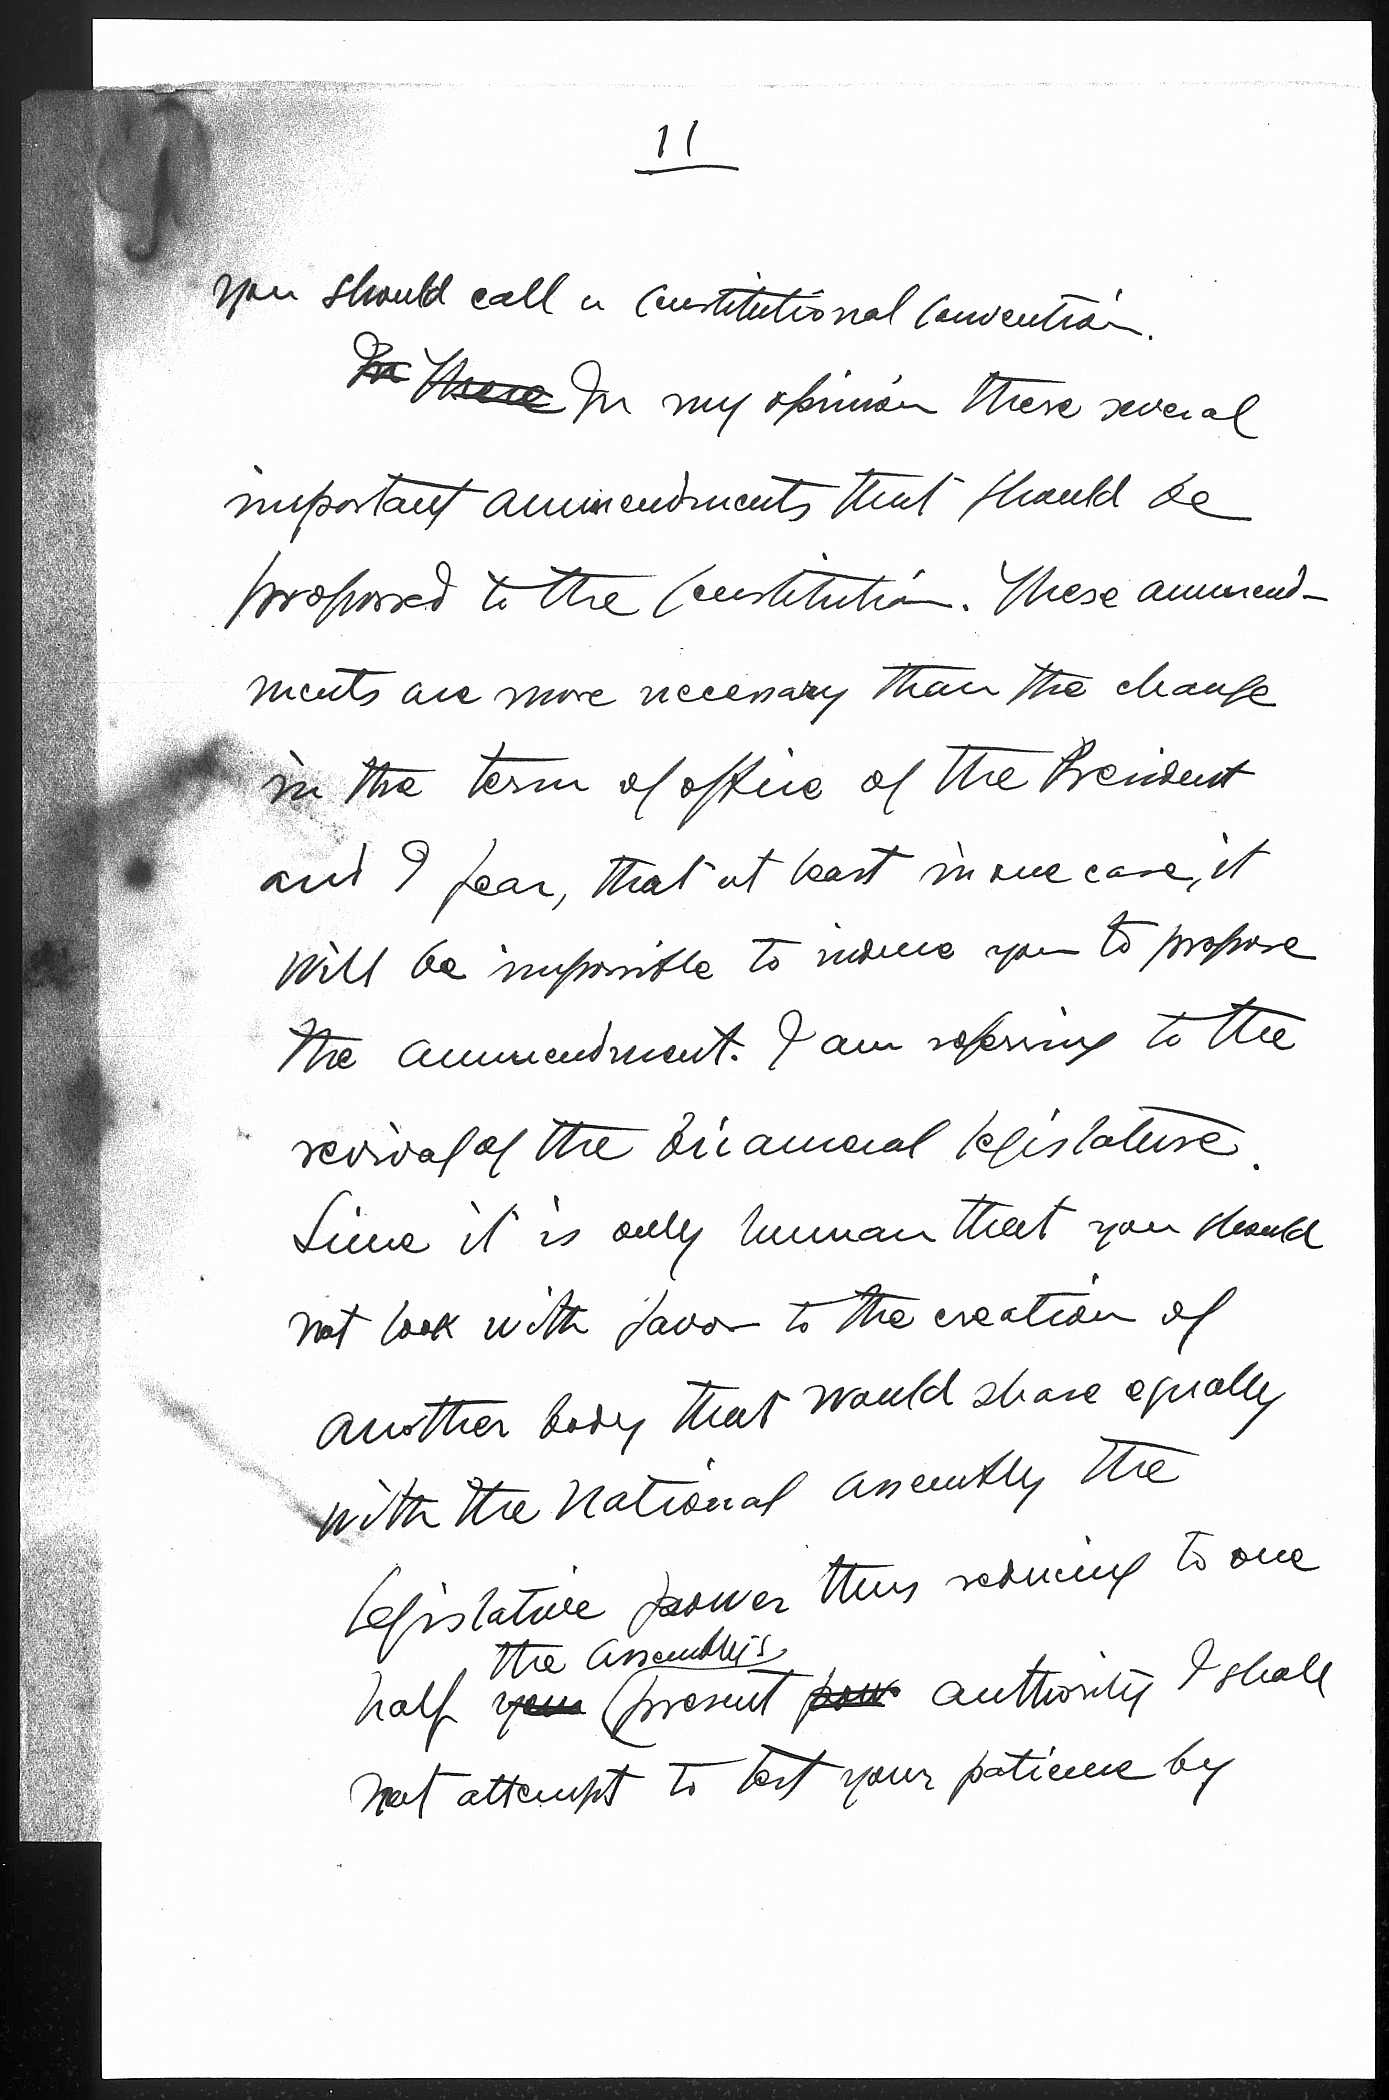 11
you should call a constitutional convention.
In There In my opinion there several
important ammendments that should be
proposed to the Constitution. These ammend-
ments are more necessary than the change
in the term of office of the President
and I fear, that at least in one case, it
will be impossible to induce you to propose
the ammendment. I am refering to the
revival of the bicameral legislature.
Since it is only human that you should
not look with favor to the creation of
another body that would share equally
with the National Assembly the
legislative power thus reducing to one
the Assembly's
half your (present pow authority I shall
not attempt to test your patience by